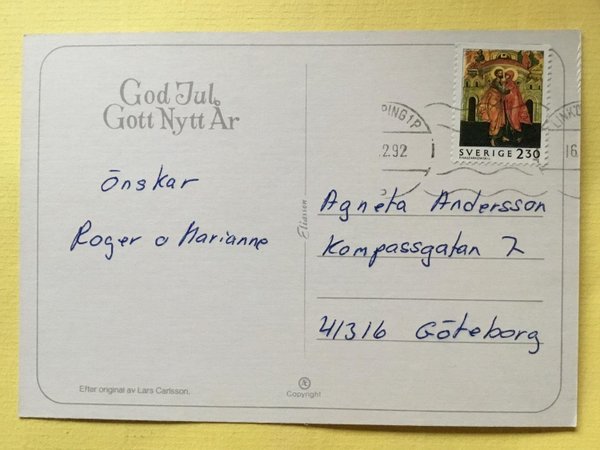 God Jul
Gott Nytt År
önskar
Roger o Marianne
PING 1P
.2.92
LINKÖ
16.
SVERIGE 2.30
Agneta Andersson
Kompassgatan 7
41316 Göteborg
Eliasson
Efter original av Lars Carlsson.
Copyright